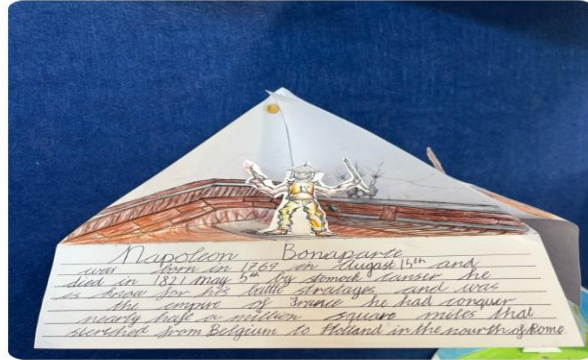 Napoleon Bonaparte
was born in 1769 on Augast 15th and
died in 1821 may 5th by stomak canser he
is know for is battle stratages and was
the empire of France he had conquer
nearly half a million square miles that
streched from Belgium to Holland in the nourth of Rome.